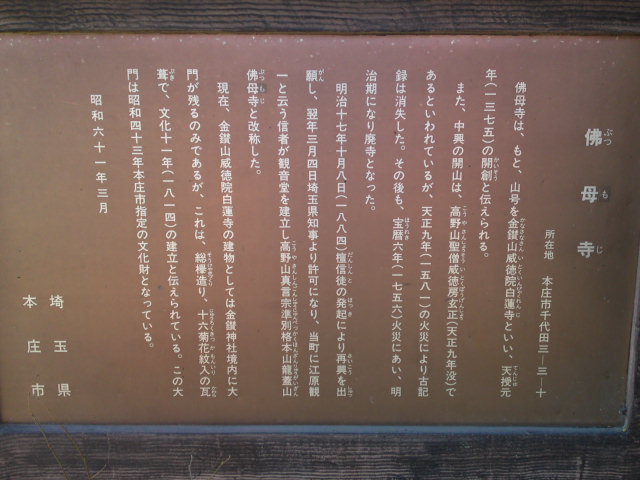 佛母寺
所在地　本庄市千代田三―三―十
佛母寺は、もと、山号を金鑚山威徳院白蓮寺といい、天授元
年(一三七五)の開創と伝えられる。
また、中興の開山は、高野山聖僧威徳房玄正(天正九年没)で
あるといわれているが、天正九年(一五八一)の火災により古記
録は消失した。その後も、宝暦六年(一七五六)火災にあい、明
治期になり廃寺となった。
明治十七年十月八日(一八八四)檀信徒の発起により再興を出
願し、翌年三月四日埼玉県知事より許可になり、当町に江原観
一と云う信者が観音堂を建立し高野山真言宗準別格本山龍蓋山
佛母寺と改称した。
現在、金鑚山威徳院白蓮寺の建物としては金鑚神社境内に大
門が残るのみであるが、これは、総欅造り、十六菊花紋入の瓦
葺で、文化十一年(一八一四)の建立と伝えられている。この大
門は昭和四十三年本庄市指定の文化財となっている。
昭和六十一年三月
埼玉県
本庄市